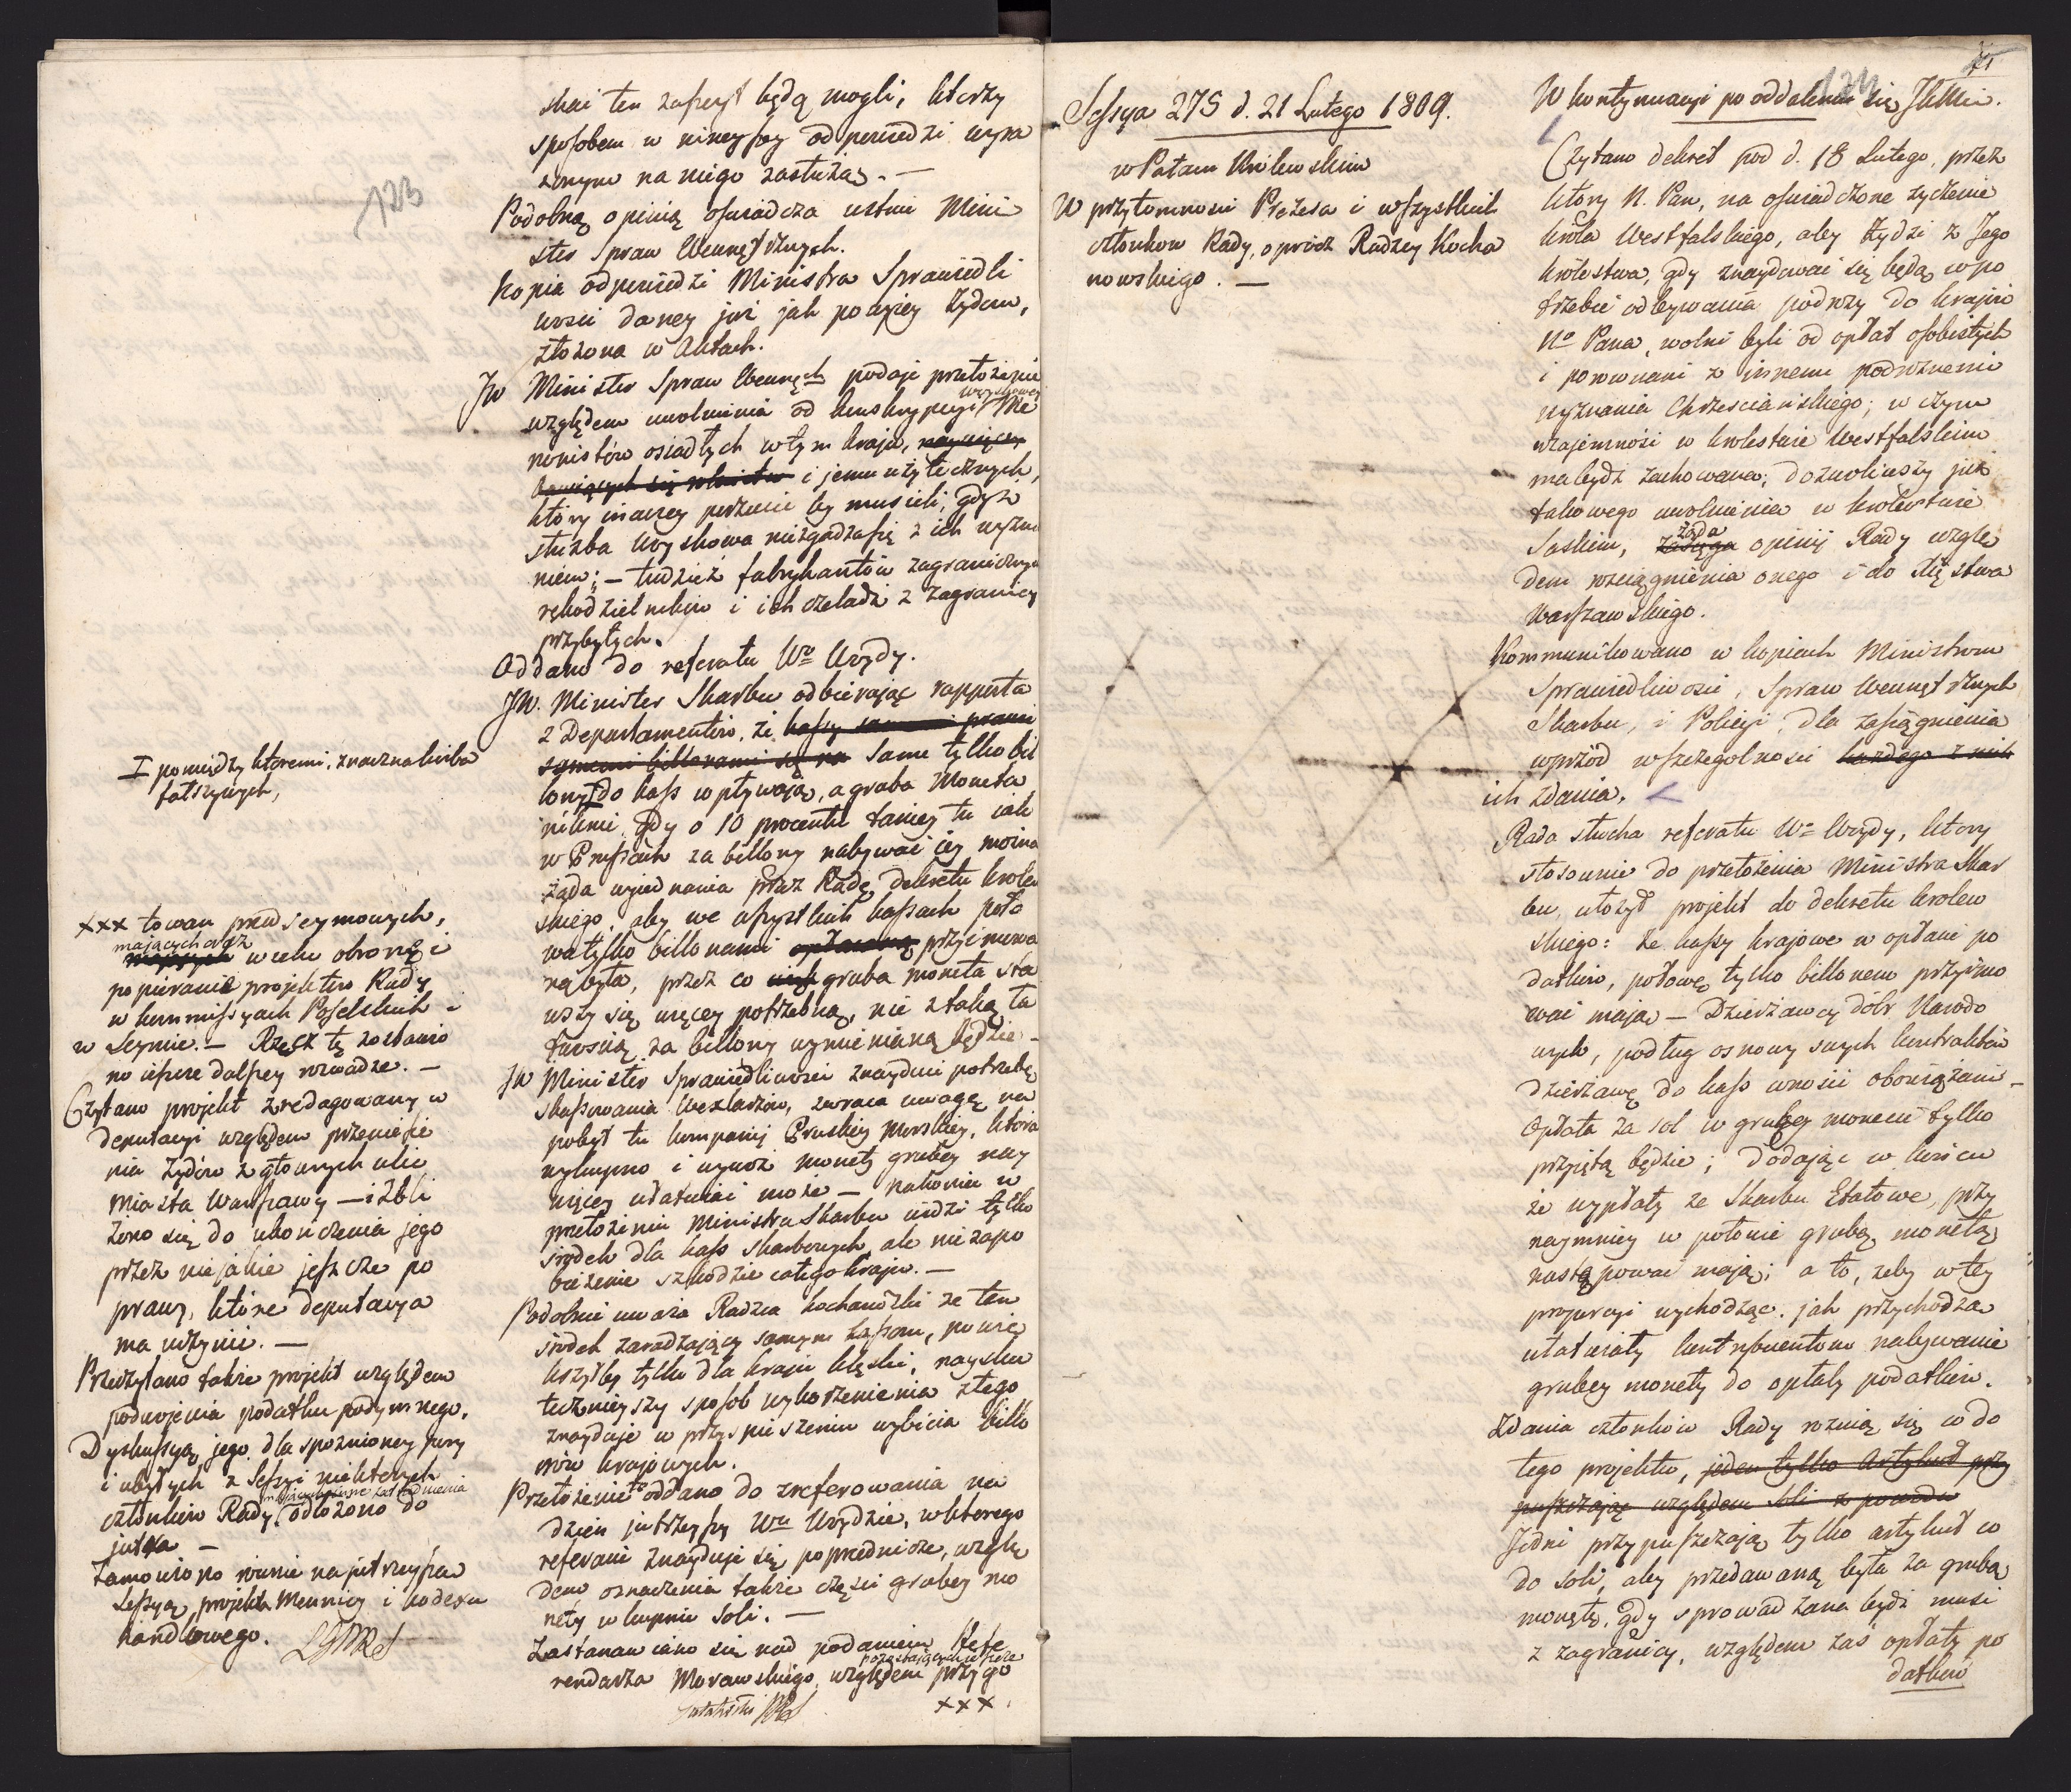 123
skać ten zaszczyt będą mogli, którzy
sposobem w ninieyszey odpowiedzi wyra
żonym na niego zasłużą. —
Podobną opinią oświadcza ustnie Mini
ster Spraw Wewnętrznych.
Kopia odpowiedzi Ministra Sprawiedli
wości daney już jak powyżey Żydom,
złożona w Aktach.
JW Minister Spraw Wewnęch podaje przełożenie
względem uwolnienia od konskrypcyi woyskowey Me
nonistów osiadłych w tym kraju, naywięcey
bawiących się rolnictw i jemu użytecznych,
który inaczey porzucić by musieli, gdyż
służba woyskowa niezgadza się z ich wyzna
niem; — tudzież fabrykantów zagranicznych
rękodzielników i ich czeladzi z zagranicy
przybyłych.
Oddano do referatu Wo Uzędy.
JW. Minister Skarbu odbierając rapporta
z Departamentów, że kassy
samemi billonami są na same tylko bil
lony I do kass wpływają, a gruba Moneta
niknie, gdy o 10 procentu taniey tu jak
w Prusiech za billony nabywać jey można
żąda wyjednania przez Radę dekretu królew
skiego, aby we wszystkich kassach poło
wa tylko billonami opłacaną przyimowa
ną była, przez co gruba moneta sta
wszy się więcey potrzebną, nie z taką ła
twością za billony wymienianą będzie —
JW Minister Sprawiedliwości znayduie potrzebę
skassowania Wexlarzów, zwraca uwagę na
pobyt tu kompanij Pruskiey Morskiey, która
wykupno i wywóz monety grubey nay
więcey ułatwiać może — nakoniec w
przełożeniu Ministra Skarbu widzi tylko
środek dla kass skarbowych, ale nie zapo
bieżenie szkodzie całego kraju. —
Podobnie uważa Radca Kochanowski że ten
środek zaradzający samym kassom, powię
kszyłby tylko dla kraju klęski, naysku
teczniejszy sposób wykorzenienia złego
znayduje w przyspieszeniu wybicia billo
nów krajowych.
Przełożenie to oddano do zreferowania na
dzień jutrzeyszy Wu Uzędzie, w którego
referacie znayduje się poprzednicze, wzglę
dem oznaczenia także części grubey mo
nety w kupnie soli. —
Zastanawiano się nad podaniem Refe
rendarza Morawskiego, względem pozostających w biurze przygo
xxx.
I pomiędzy któremi, znaczna liczba
fałszywych,
xxx towan prew seymowych,
mających oraz
w celu obronę i
popieranie projektów Rady
w kommissyach Poselskich —
w Seymie. — Rzecz tę zostawio
no ieszcze dalszey rozwadze. —
Czytano projekt zredagowany w
deputacyi względem przeniesie
nia Żydów z głównych ulic
Miasta Warszawy — i zbli
żono się do ukończenia jego
przez niejakie jeszcze po
prawy, które deputacya
ma uczynić. —
Przeczytano także projekt względem
podwojenia podatku podymnego,
Dyskussyą jego dla spoźnioney pory
i ubyłych z Sessyi niektórych
członków Rady, odłożono do
jutra —
Zamówiono winnie na jutrzeyszą
Sessyą projekta Mennicy i kodexu
handlowego.
Sessya 275 d. 21 Lutego 1809.
w Pałacu Królewskim
W przytomności Prezesa i wszystkich
członków Rady, oprócz Radzcy Kocha
nowskiego. —
124
W kontynuacyi po oddaleniu się JKMci.
Czytano dekret pod d. 18 Lutego, przez
który N. Pan, na oświadczone życzenie
króla Westfalskiego, aby Żydzi z Jego
królestwa, gdy znaydować się będą w po
trzebie odbywania podróży do krajów
No Pana, wolni byli od opłat osobistych
i porównani z innemi podróżnemi
wyznania Chrześciańskiego; w czym
wzajemność w królestwie Westfalskim
ma bydź zachowana; dozwoliwszy już
takowego uwolnienia w królestwie
Saskim, zasięga żąda opinij Rady wzglę
dem rozciągnienia onego i do Xięstwa
Warszawskiego.
Kommunikowano w kopiach Ministrom
Sprawiedliwości, Spraw Wewnętrznych
Skarbu, i Policyi, dla zasiągnienia
wprzód wszczególności każdego z nich
ich zdania.
Rada słucha referatu Wo Uzędy, który
stosownie do przełożenia Ministra Skar
bu, ułożył projekt do dekretu królew
skiego: że kassy krajowe w opłacie po
datków, połowę tylko billonem przyimo
wać mają — Dzierżawcy dóbr Narodo
wych, podług osnowy swych kontraktów
dzierżawę do kass wnosić obowiązani —
Opłata za sól w grubey monecie tylko
przyjętą będzie; dodając w końcu
że wypłaty ze Skarbu Etatowe, przy
naymniey w połowie grubą monetą
następować mają; a to, żeby w tey
proporcyi wychodząc, jak przychodzą
ułatwiały kontrybuentom nabywanie
grubey monety do opłaty podatków.
Zdania członków Rady różnią się co do
tego projektu, jeden tylko Artykuł przy
puszczając względem Soli z powodu
Jedni przypuszczają tylko artykuł co
do Soli, aby przedawaną była za grubą
monetę, gdy sprowadzana bydź musi
z zagranicy, względem zaś opłaty po
datków